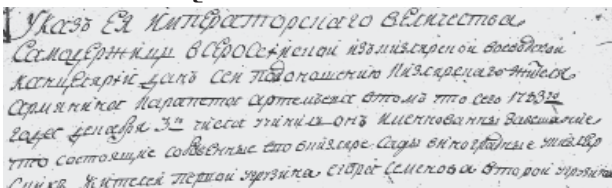 Указъ Ея Императорскаго Величества
Самодержицы Всеросийской изъ кизлярской воеводской
канцелярий данъ сей по доношению кизлярского жителя
армянина Карапета Артемьева втомъ что сего 1783 го
года генваря 3 го числа учинилъ онъ именнованны завещание
что состоящие собственные ево вкизляре сады виноградные
жителей первой грузина Семенова второй грузина